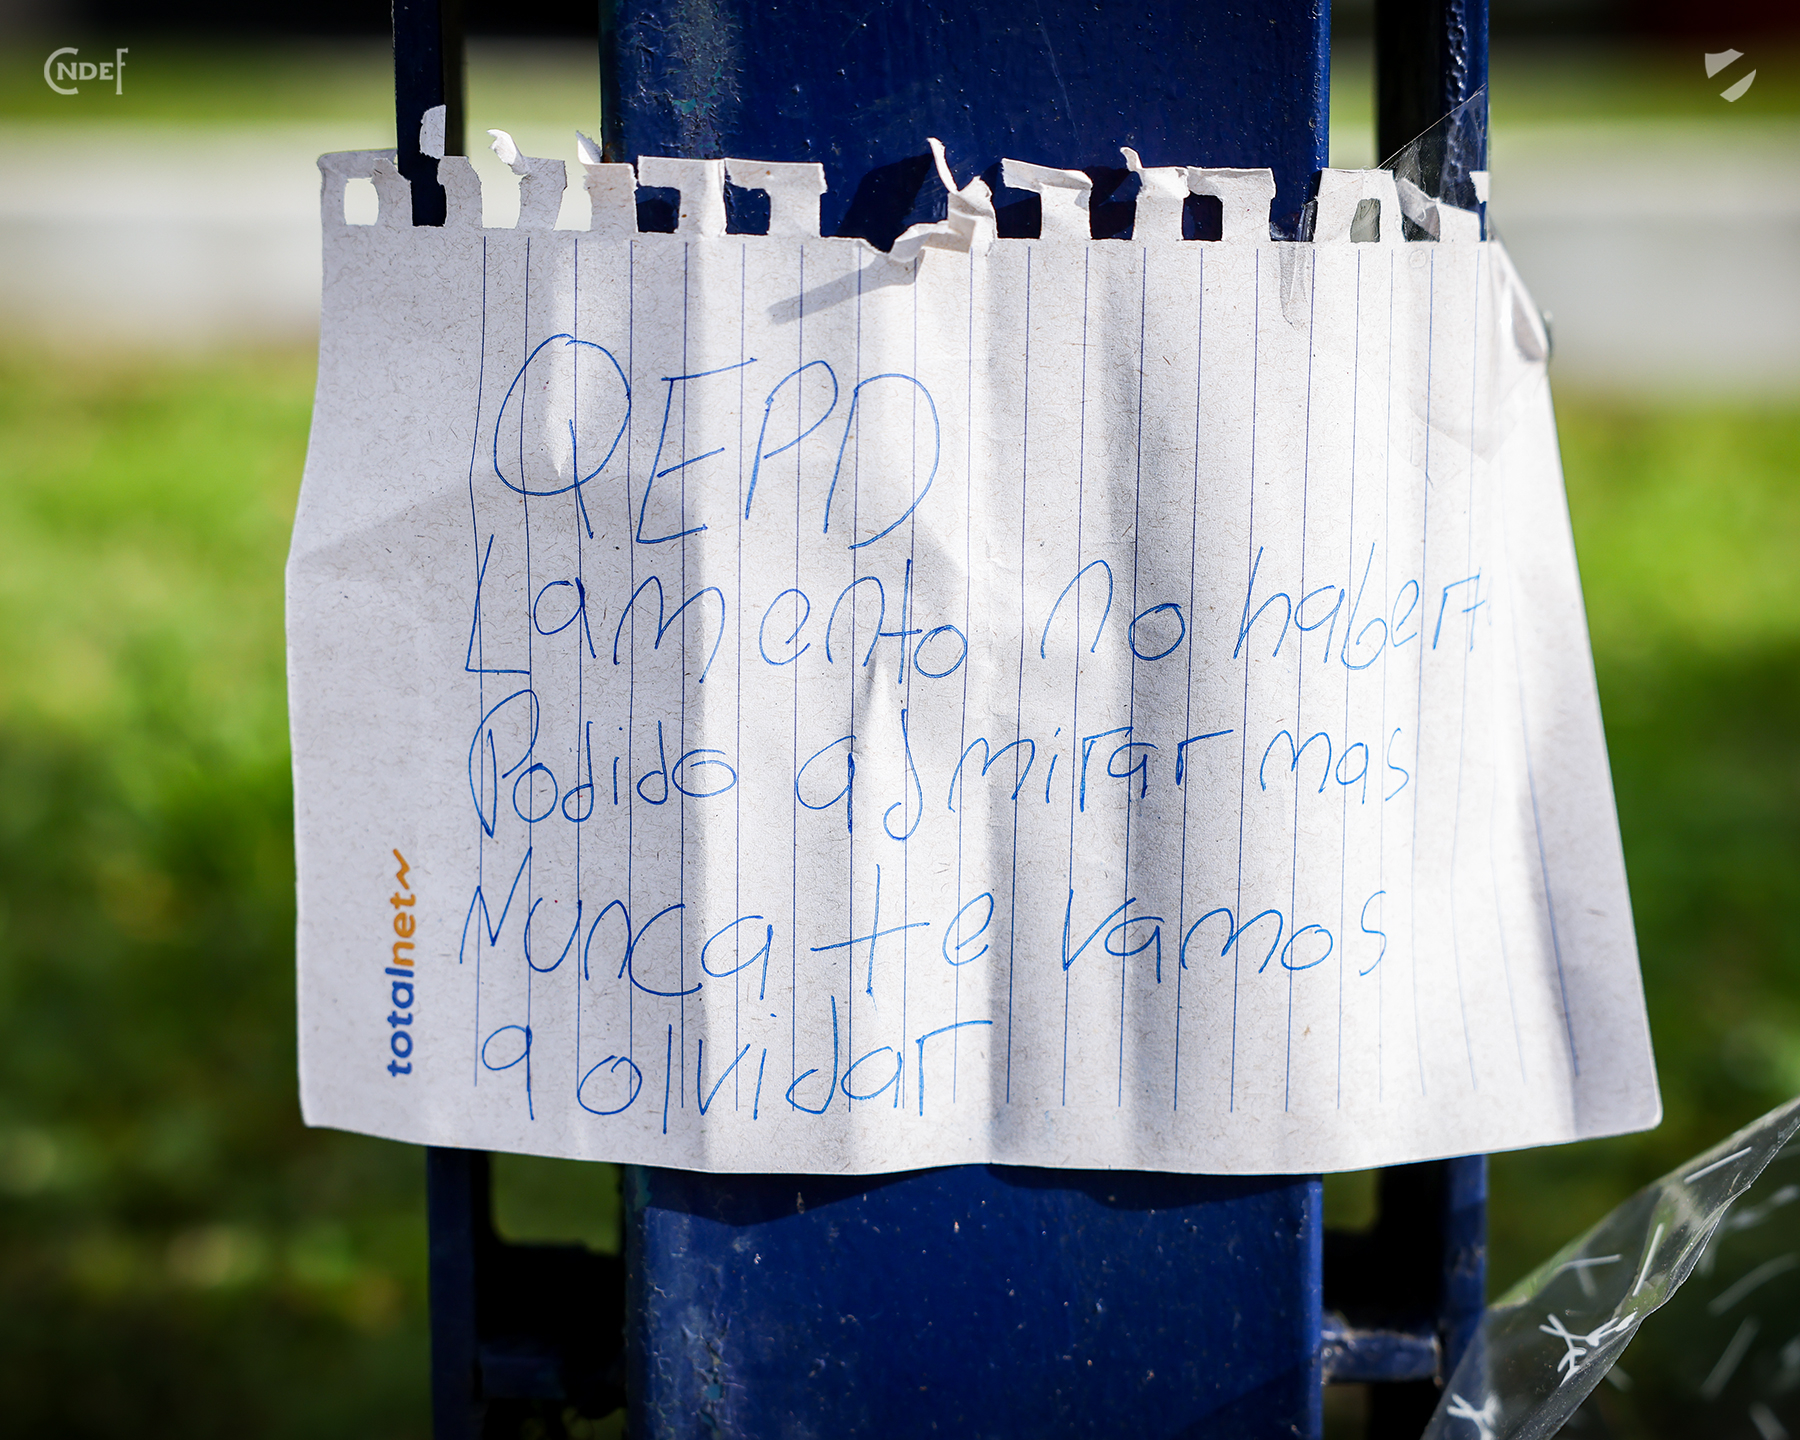 CNDEF
QEPD
Lamento no haberte
Podido admirar mas
Nunca te vamos
a olvidar
totalnet